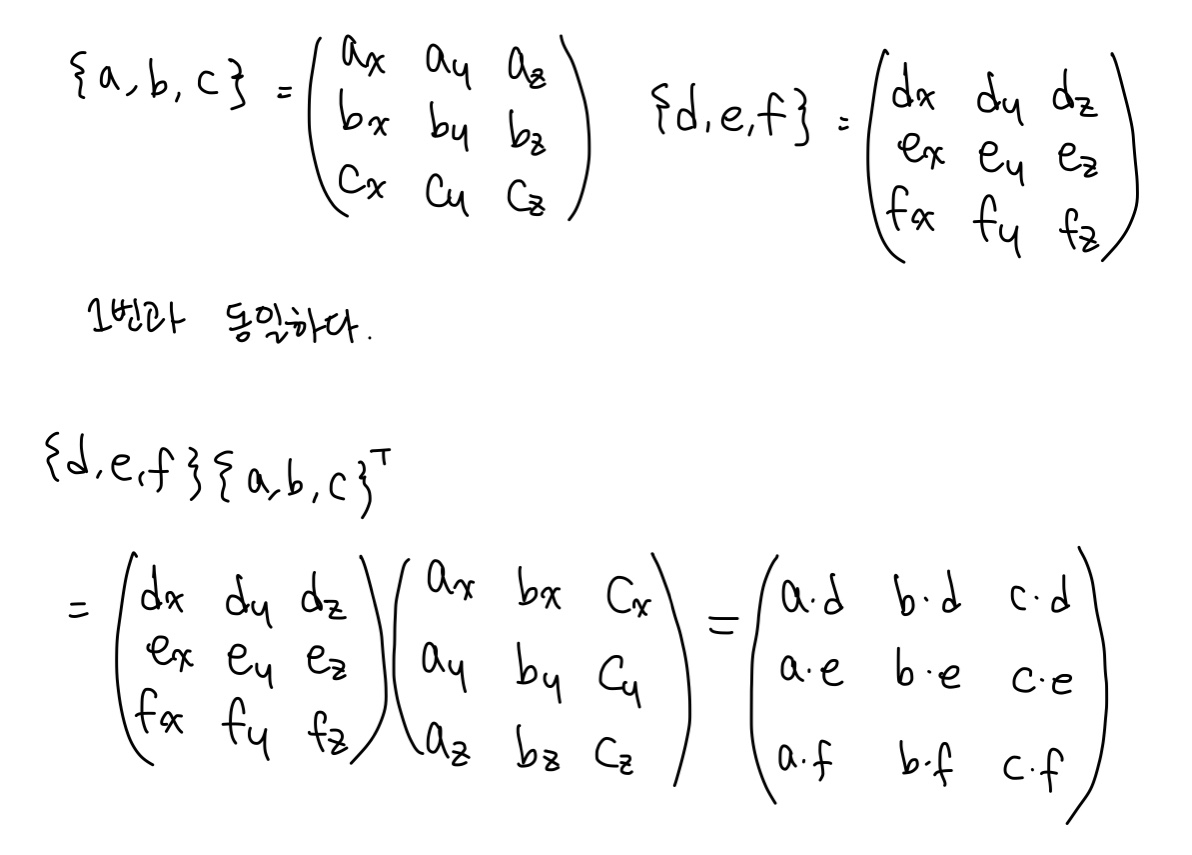 {a, b, c} = (ax ay az
bx by bz
cx cy cz)
{d, e, f} = (dx dy dz
ex ey ez
fx fy fz)
1번과 동일하다.
{d, e, f}{a, b, c}ᵀ
= (dx dy dz
ex ey ez
fx fy fz)
(ax bx cx
ay by cy
az bz cz)
= (a·d b·d c·d
a·e b·e c·e
a·f b·f c·f)